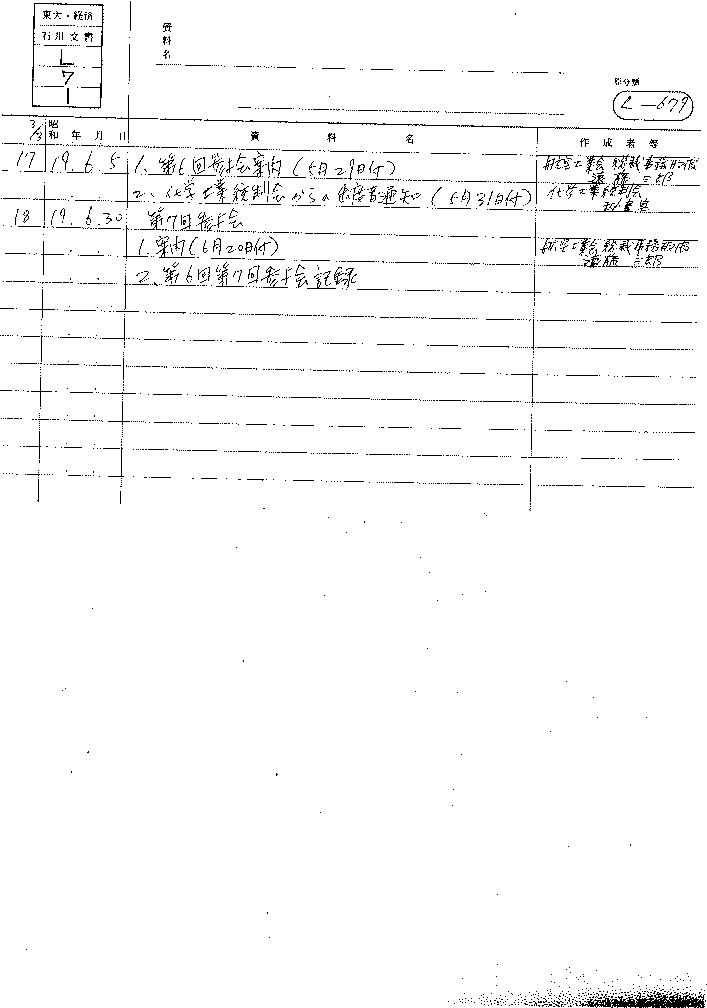 東大・経済
石川文書
L
7
1
資料名
原分類
L-679
3/3 昭和 年 月 日 資料名 作成者等
17 19.6.5 1、第6回参与会案内(5月29日付)
遠藤三郎
2、化学工業統制会からの 通知(5月31日付) 化学工業統制会
18 19.6.30 第7回参与会
1.案内(6月20日付)
遠藤三郎
2、第6回第7回参与会記録